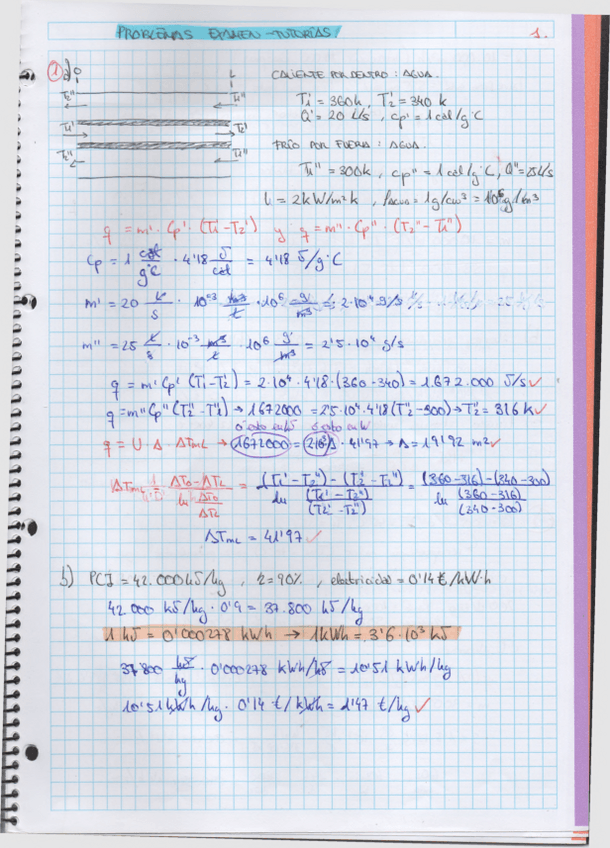 PROBLEMAS EXAMEN - TUTORÍAS 1.
1 a) 0 L
T2'' T1''
T1' T2'
T2'' T1''
CALIENTE POR DENTRO: AGUA.
T1' = 360k, T2' = 340 k
Q' = 20 L/s, cp' = 1 cal/g°C
FRÍO POR FUERA: AGUA.
T1'' = 300k, cp'' = 1 cal/g°C, Q'' = 25 L/s
U = 2kW/m²k, ρagua = 1g/cm³ = 10⁶ g/m³
q = m'·Cp'·(T1'-T2') y q = m''·Cp''·(T2''-T1'')
Cp = 1 cal/g°C · 4'18 J/cal = 4'18 J/g°C
m' = 20 ℓ/s · 10⁻³ m³/ℓ · 10⁶ g/m³ = 2·10⁴ g/s
m'' = 25 ℓ/s · 10⁻³ m³/ℓ · 10⁶ g/m³ = 2'5·10⁴ g/s
q = m' Cp' (T1'-T2') = 2·10⁴·4'18·(360-340) = 1.672.000 J/s ✓
q = m'' Cp'' (T2''-T1'') → 1672000 = 2'5·10⁴·4'18 (T2''-300) → T2'' = 316 k ✓
q = U·A·ΔTmL → 1672000 = 2·10³·A·41'97 → A = 19'92 m² ✓
ΔTmL = (ΔT0-ΔTL)/(ln ΔT0/ΔTL) = ((T1'-T2'')-(T2'-T1''))/(ln (T1'-T2'')/(T2'-T1'')) = ((360-316)-(340-300))/(ln (360-316)/(340-300))
ΔTmL = 41'97 ✓
b) PCI = 42.000 kJ/kg, η = 90%, electricidad = 0'14 €/kW·h
42.000 kJ/kg · 0'9 = 37.800 kJ/kg
1 kJ = 0'000278 kWh → 1kWh = 3'6·10³ kJ
37.800 kJ/kg · 0'000278 kWh/kJ = 10'51 kWh/kg
10'51 kWh/kg · 0'14 €/kWh = 1'47 €/kg ✓